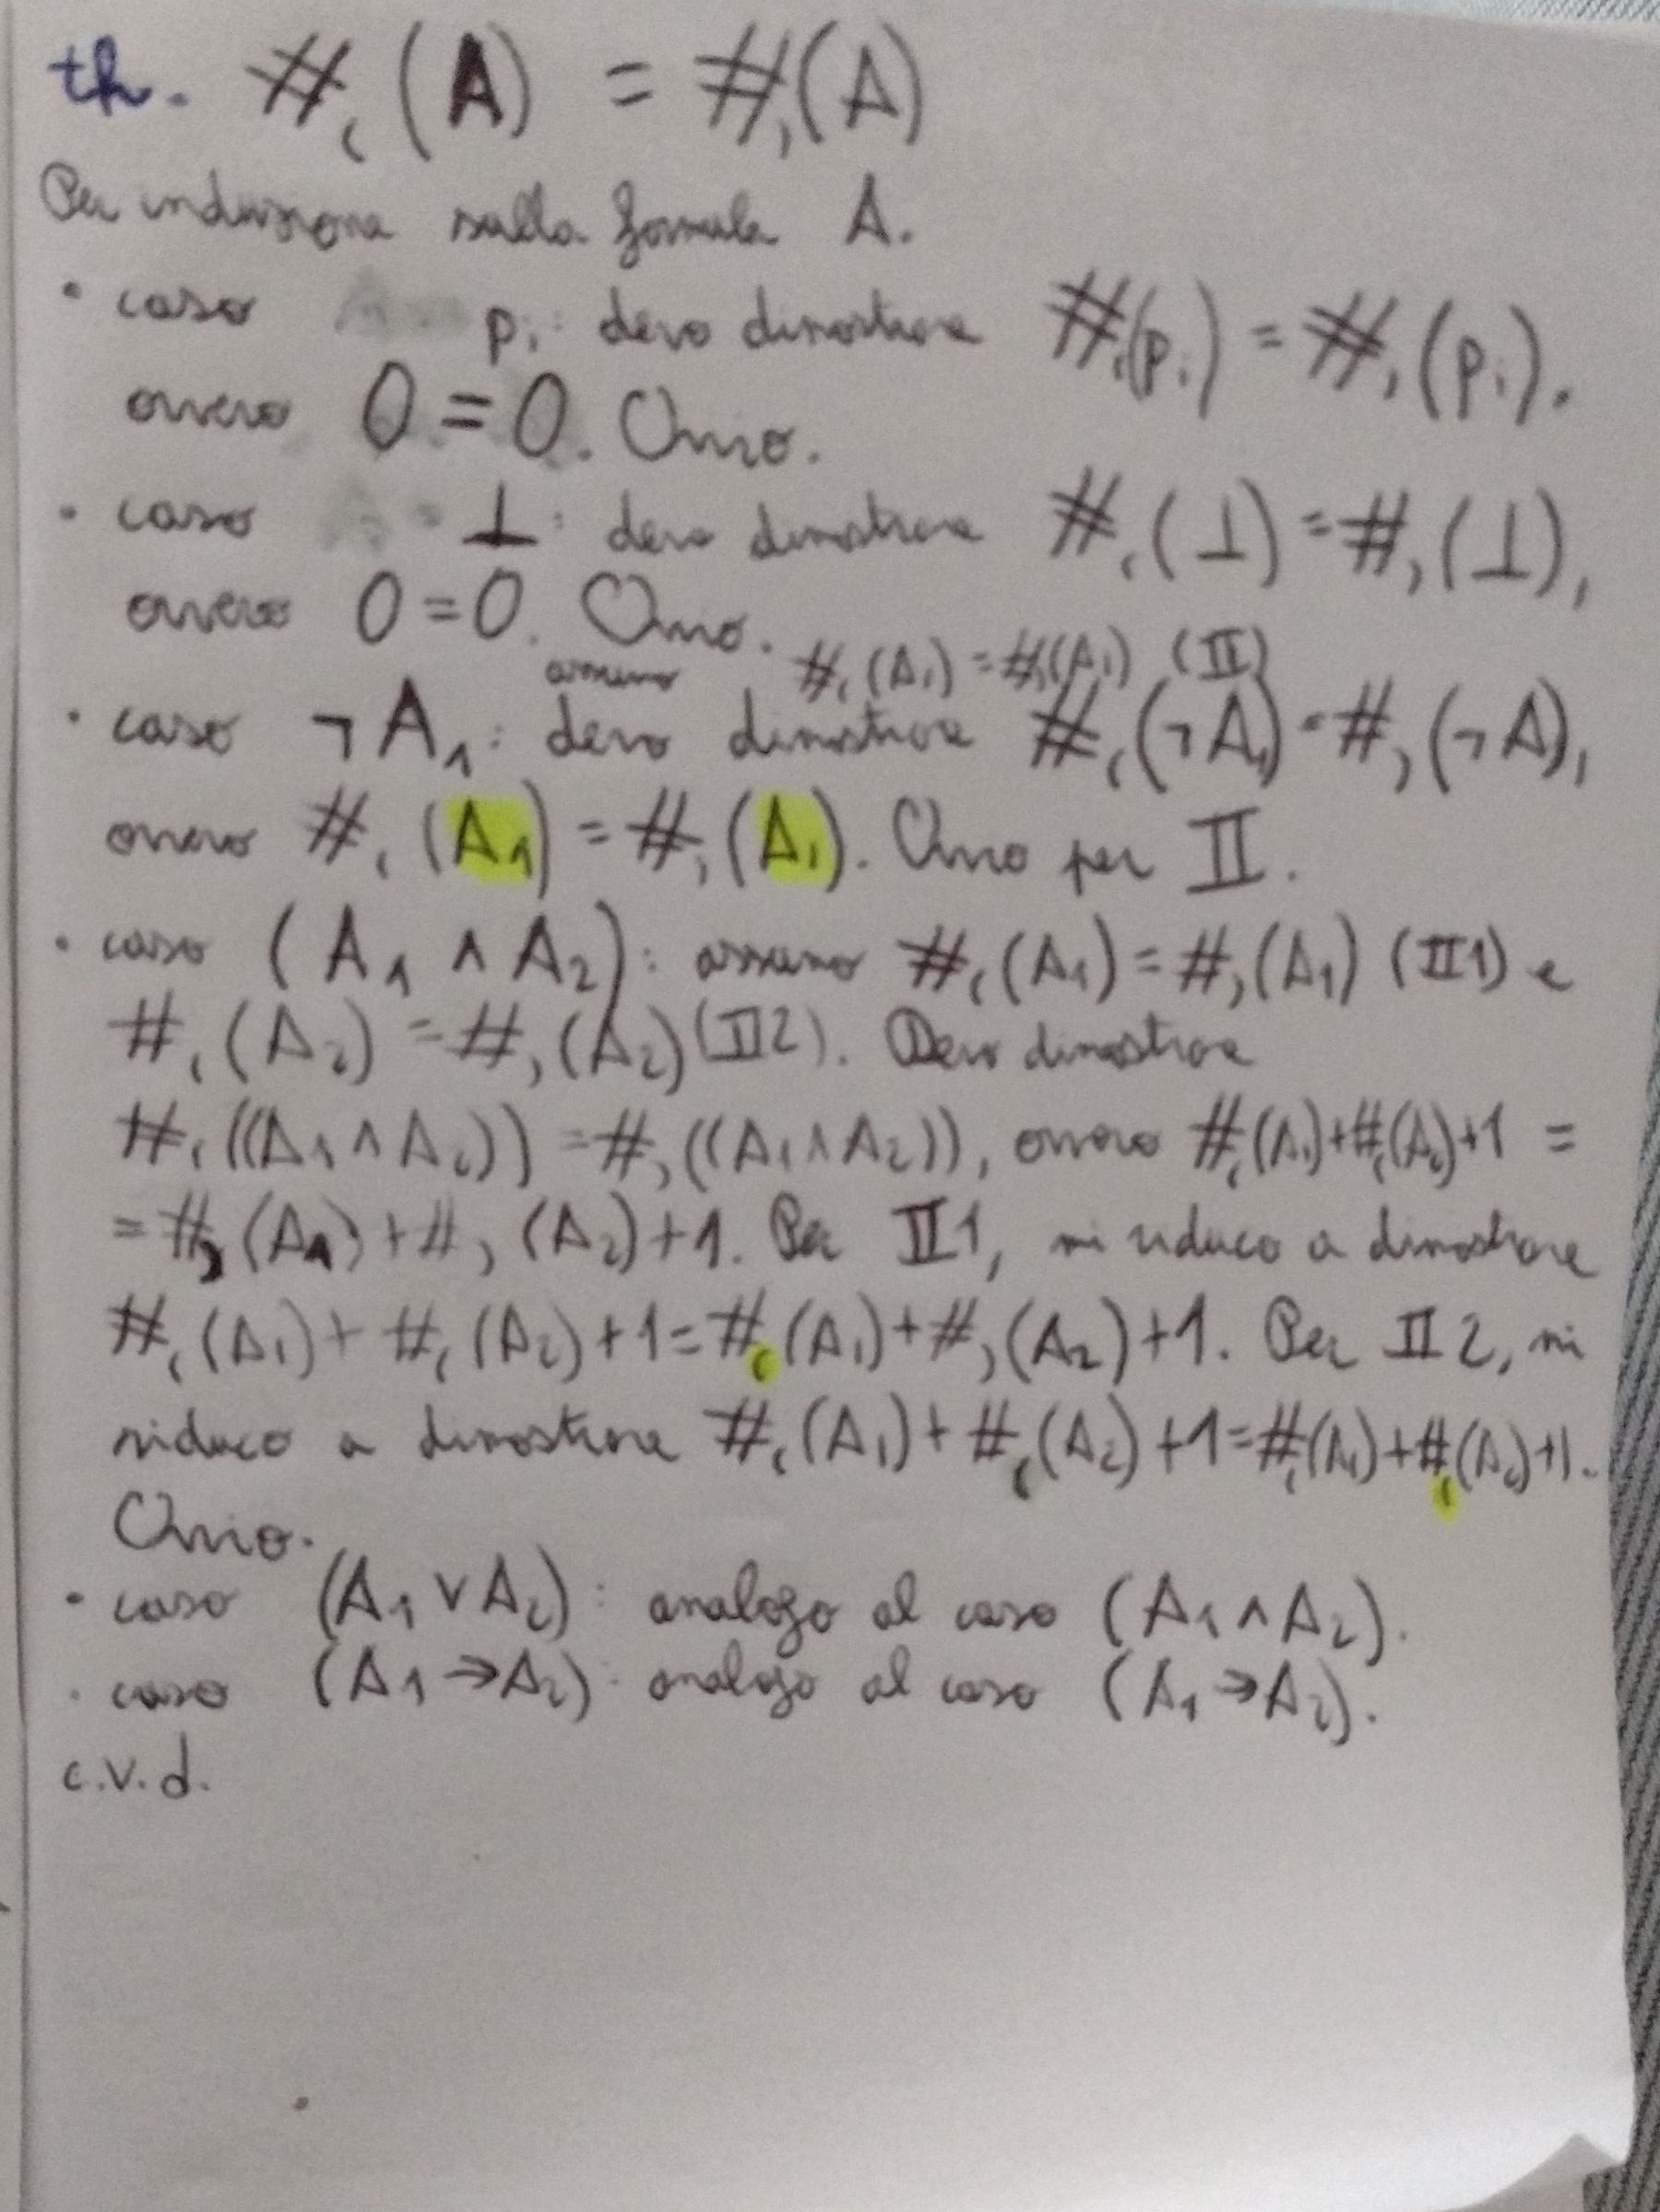 th. #₍ (A) = #₎(A)
Per induzione sulla formula A.
• caso pᵢ: devo dimostrare #₍(pᵢ) = #₎(pᵢ).
ovvero 0 = 0. Ovvio.
• caso ⊥: devo dimostrare #₍(⊥) = #₎(⊥),
ovvero 0 = 0. Ovvio.
assumo #₍(A₁) = #₎(A₁) (II)
• caso ¬A₁: devo dimostrare #₍(¬A₁) = #₎(¬A),
ovvero #₍(A₁) = #₎(A₁). Ovvio per II.
• caso (A₁ ∧ A₂): assumo #₍(A₁) = #₎(A₁) (II1) e
#₍(A₂) = #₎(A₂) (II2). Devo dimostrare
#₍((A₁ ∧ A₂)) = #₎((A₁ ∧ A₂)), ovvero #₍(A₁)+#₍(A₂)+1 =
= #₎(A₁) + #₎(A₂) + 1. Per II1, mi riduco a dimostrare
#₍(A₁) + #₍(A₂) + 1 = #₍(A₁) + #₎(A₂) + 1. Per II2, mi
riduco a dimostrare #₍(A₁) + #₍(A₂) + 1 = #₍(A₁) + #₍(A₂) + 1.
Ovvio.
• caso (A₁ ∨ A₂): analogo al caso (A₁ ∧ A₂).
• caso (A₁ → A₂): analogo al caso (A₁ → A₂).
c.v.d.